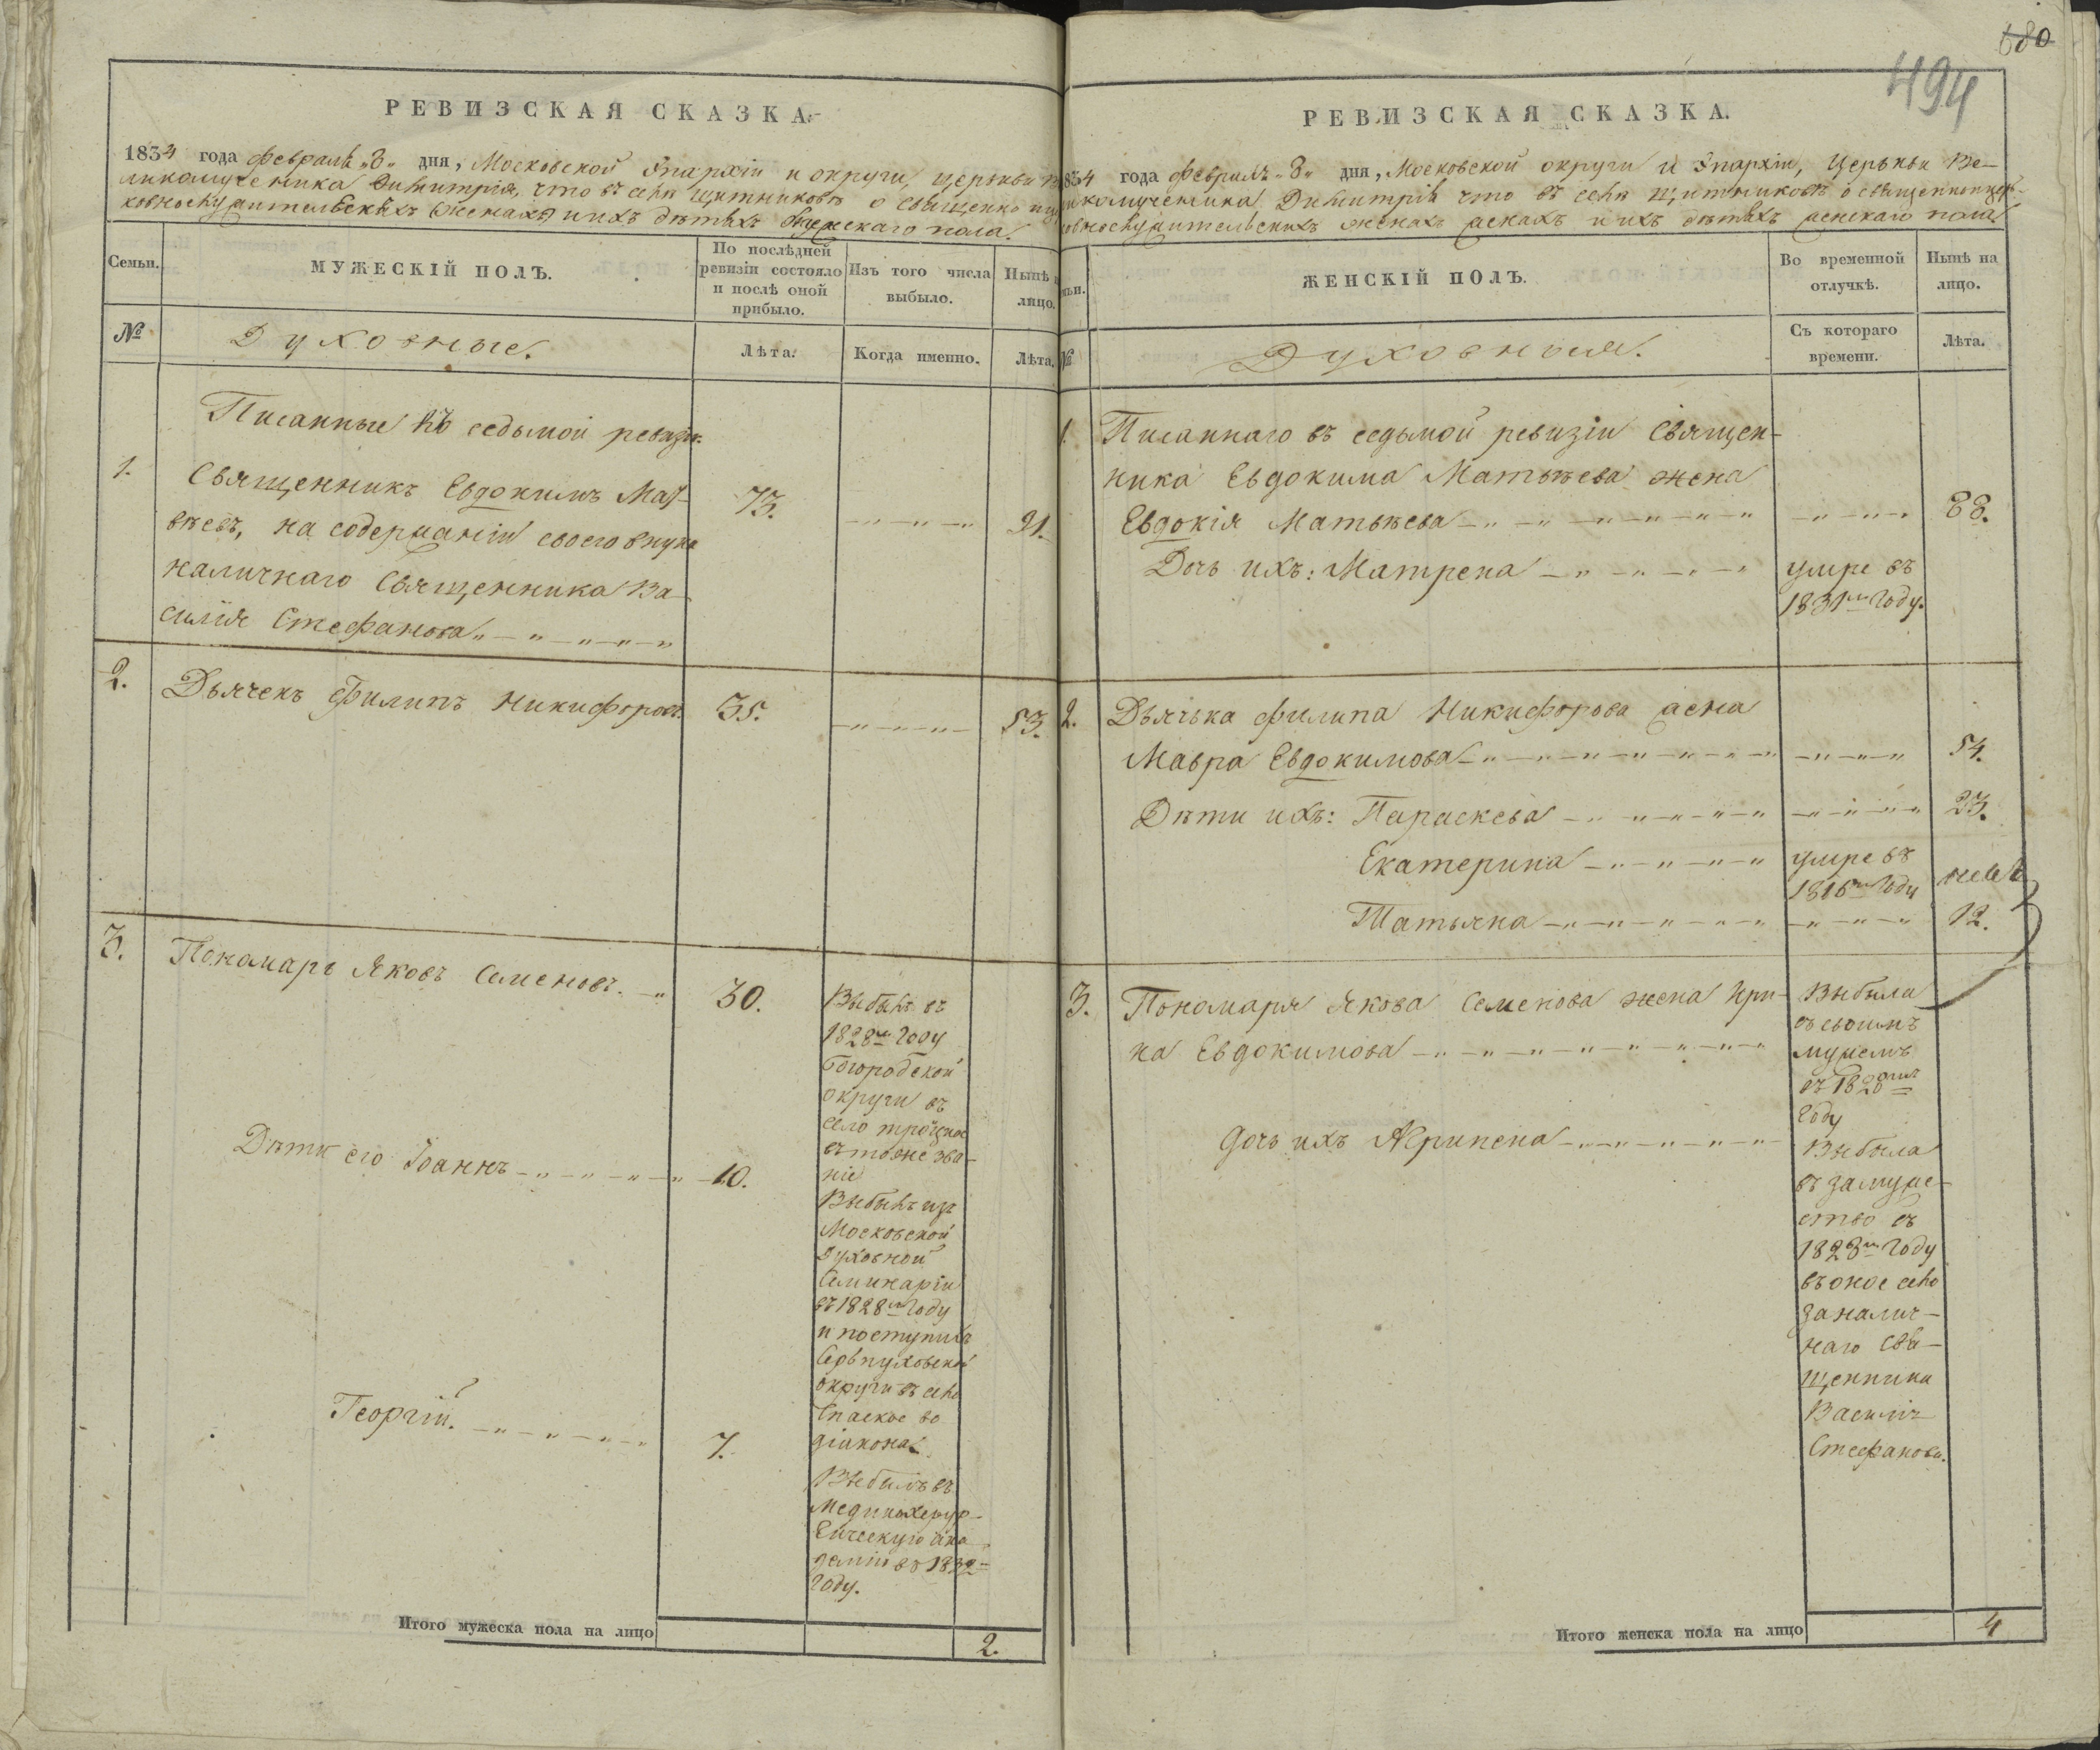 680
494
РЕВИЗСКАЯ СКАЗКА.
1834 года февраля „8„ дня, Московской Эпархіи и округи, церькви Ве-
ликомученика Димитрія, что въ селѣ Щитниковѣ о священно
ковнослужительскихъ женахъ и ихъ дѣтяхъ мужескаго пола.
Семьи.
МУЖЕСКІЙ ПОЛЪ.
По послѣдней
ревизіи состояло
и послѣ оной
прибыло.
Изъ того числа
выбыло.
Нынѣ
лицо.
№
Духовные.
Лѣта.
Когда именно.
Лѣта.
Писанные въ седьмой ревизіи:
1.
Священникъ Евдокимъ Мат-
вѣевъ, на содержаніи своего внука
наличнаго Священника Ва-
силія Стефанова
73.
91.
2.
Дьячекъ Филипъ Никифоровъ.
35.
53.
3.
Пономарь Яковъ Семеновъ.
30.
Выбылъ въ
1828мъ году
Богородской
округи въ
село Троицкое
въ тоже зва-
ніе
Дѣти его Іоаннъ
10.
Выбылъ изъ
Московской
Духовной
Семинаріи
въ 1828мъ году
и поступилъ
Серпуховской
округи въ село
Спаское во
діакона.
Георгій.
7.
Выбылъ въ
Медикохирур-
гическую ака-
демію въ 1832м
году.
Итого мужеска пола на лицо
2.
РЕВИЗСКАЯ СКАЗКА.
1834 года февраля „8„ дня, Московской округи и Эпархіи, Церькви Ве-
ликомученика Димитрія что въ селѣ Щитниковѣ о священноцер-
ковнослужительскихъ женахъ и ихъ дѣтяхъ женскаго пола
ЖЕНСКІЙ ПОЛЪ.
Во временной
отлучкѣ.
Нынѣ на
лицо.
№
Духовныя.
Съ котораго
времени.
Лѣта.
1.
Писаннаго въ седьмой ревизіи Священ-
ника Евдокима Матвѣева жена
Евдокія Матвѣева
88.
Дочь ихъ: Матрена
умре въ
1831мъ году.
2.
Дьячька Филипа Никифорова жена
Мавра Евдокимова
54.
Дѣти ихъ: Параскева
23.
Екатерина
умре въ
1816мъ году
Татьяна
12.
3.
Пономаря Якова Семенова жена Ири-
на Евдокимова
Выбыла
съ своимъ
мужемъ
въ 1828омъ
году
Дочь ихъ Акрипена
Выбыла
въ замуже-
ство въ
1828мъ году
въ оное село
за налич-
наго Свя-
щенника
Василія
Стефанова.
Итого женска пола на лицо
4